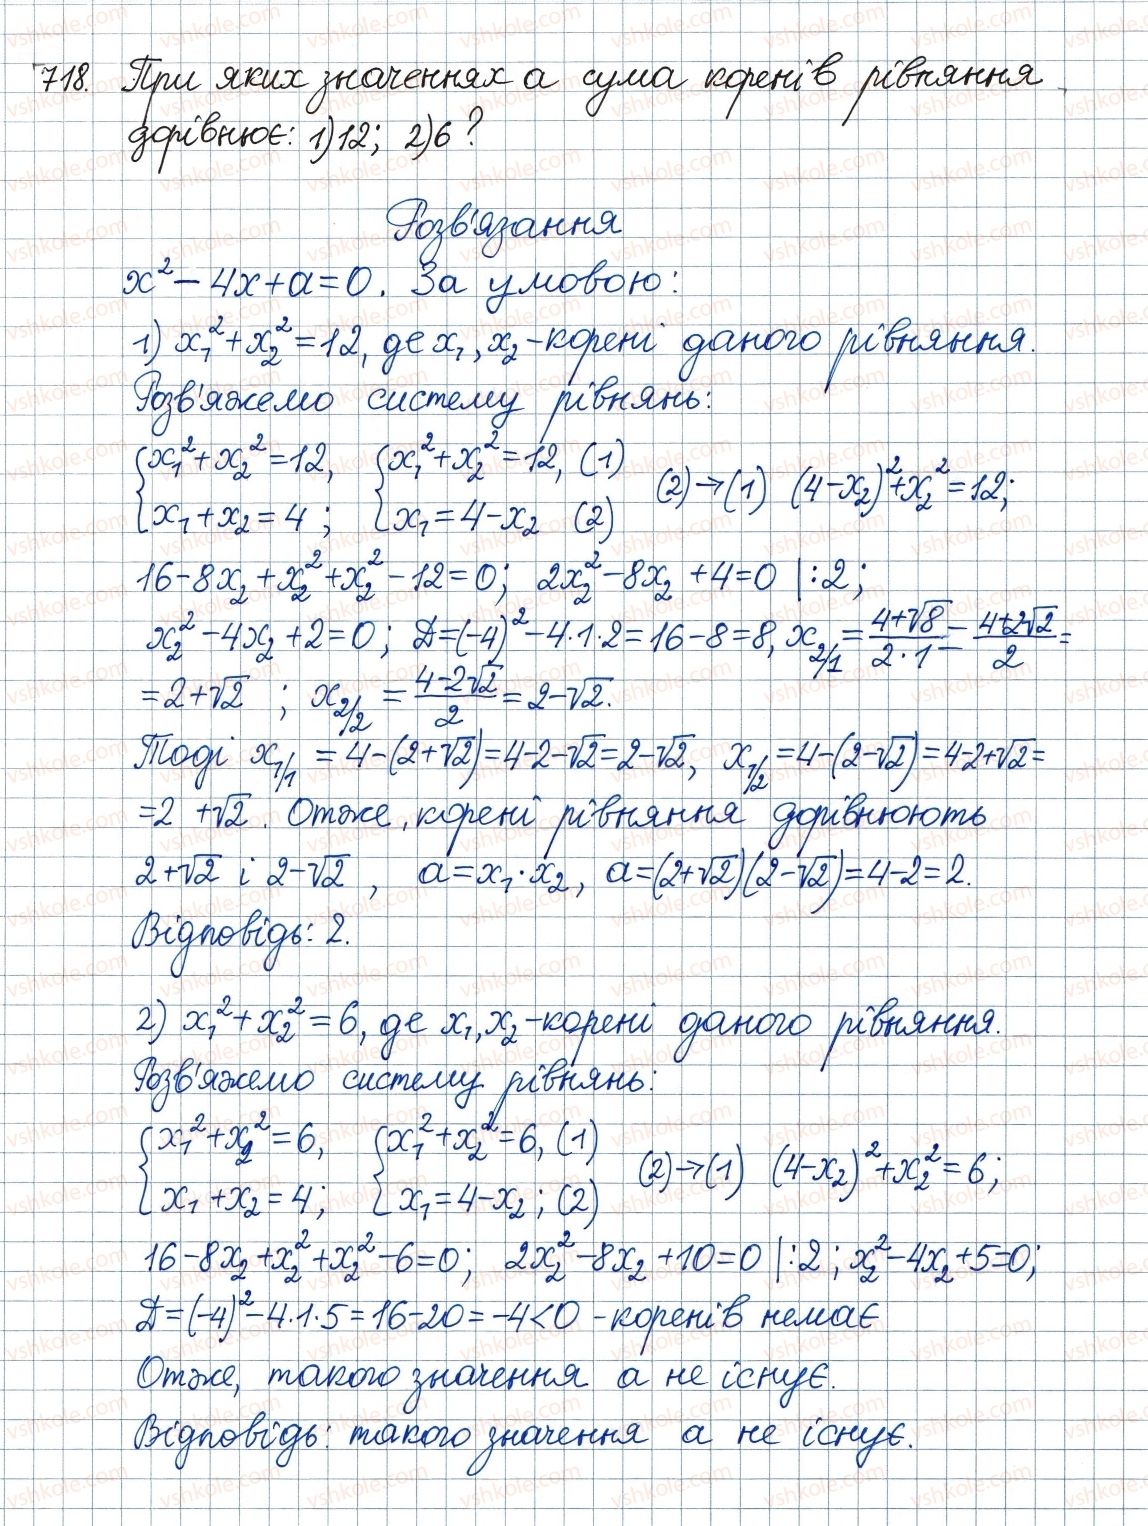 718. При яких значеннях a сума коренів рівняння
дорівнює: 1) 12; 2) 6?
Розв'язання
x² - 4x + a = 0. За умовою:
1) x₁² + x₂² = 12, де x₁, x₂ - корені даного рівняння.
Розв'яжемо систему рівнянь:
{x₁² + x₂² = 12, {x₁² + x₂² = 12, (1)
x₁ + x₂ = 4; x₁ = 4 - x₂ (2) (2)→(1) (4-x₂)² + x₂² = 12;
16 - 8x₂ + x₂² + x₂² - 12 = 0; 2x₂² - 8x₂ + 4 = 0 |:2;
x₂² - 4x₂ + 2 = 0; D = (-4)² - 4·1·2 = 16 - 8 = 8, x₂/₁ = (4+√8)/(2·1) = (4+2√2)/2 =
= 2+√2; x₂/₂ = (4-2√2)/2 = 2-√2.
Тоді x₁/₁ = 4-(2+√2) = 4-2-√2 = 2-√2, x₁/₂ = 4-(2-√2) = 4-2+√2 =
= 2+√2. Отже, корені рівняння дорівнюють
2+√2 і 2-√2, a = x₁·x₂, a = (2+√2)(2-√2) = 4-2 = 2.
Відповідь: 2.
2) x₁² + x₂² = 6, де x₁, x₂ - корені даного рівняння.
Розв'яжемо систему рівнянь:
{x₁² + x₂² = 6, {x₁² + x₂² = 6, (1)
x₁ + x₂ = 4; x₁ = 4 - x₂; (2) (2)→(1) (4-x₂)² + x₂² = 6;
16 - 8x₂ + x₂² + x₂² - 6 = 0; 2x₂² - 8x₂ + 10 = 0 |:2; x₂² - 4x₂ + 5 = 0;
D = (-4)² - 4·1·5 = 16 - 20 = -4 < 0 - коренів немає
Отже, такого значення a не існує.
Відповідь: такого значення a не існує.